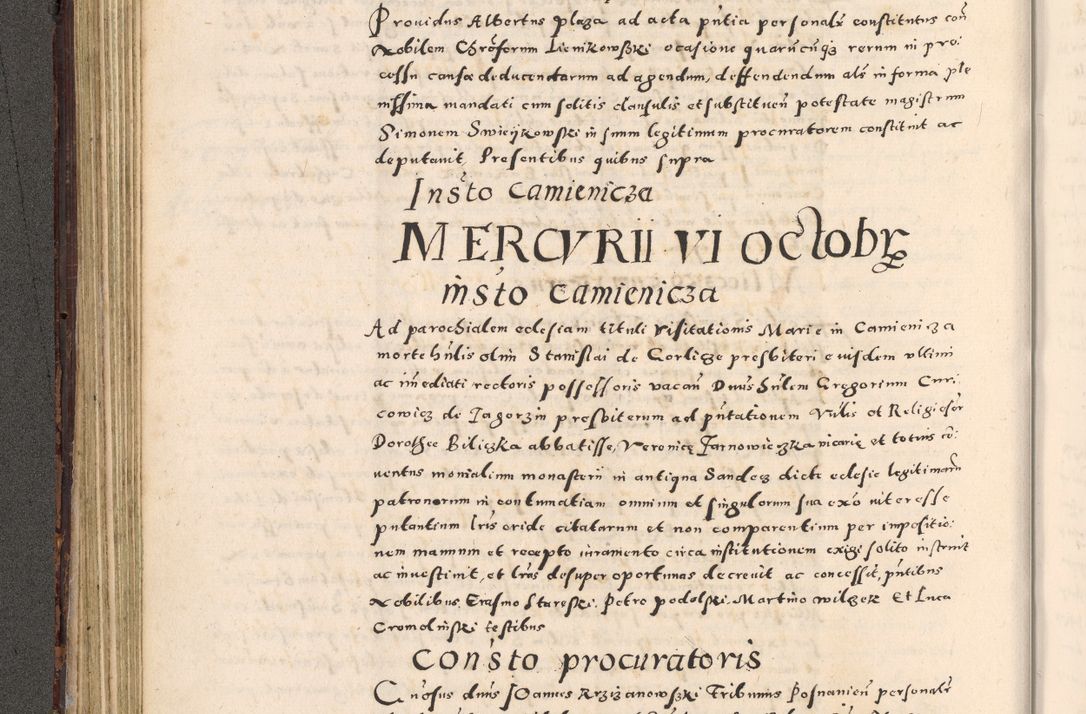 Providus Albertus plaga ad acta pn̄tia personalr̄ constitutus con̄
Nobilem Chrōforum Lienikowski ocasione quarūcūqz rerum in pro:
cessu causae deducendarum ad agendum, deffendendum als in forma ple
nissima mandati cum solitis clausulis et substituen̄ potestate magistrum
Simonem Swieykowski in suum legitimum procuratorem constituit ac
deputavit, Presentibus quibus supra
Insto Camienicza
MERCVRII VI Octobr
insto Camienicza
Ad parochialem eclesiam tituli visitationis Marie in Camienicza
morte hn̄lis olim Stanislai de Gorlicze presbiteri eiusdem ultimi
ac im̄ediati rectoris possessoris vacan̄ Dnus hn̄lem Gregorium Curi
cowicz de Jagorzin presbiterum ad pn̄tationem Vn̄lis et Religiosar̄
Dorothee Biliczka abbatisse, Veronicę Jarnowieczka vicarię et totius cō:
ventus monialium monasterii in antiqua Sandecz dicte eclesie legitimar̄
patronorum in contumatiam omnium et singulorum sua exō interesse
putantium lrīs oride citatarum et non comparentium per impositio:
nem manuum et recepto iuramento circa institutionem exigi solito instituit
ac investiuit, et lrās desuper oportunas decrevit ac concessit, pn̄tibus
Nobilibus Erasmo Stareski, Petro podolski, Martino wilczek Et Luca
Cromolinski testibus
Consto procuratoris
Gn̄osus dnus Joannes Krzizanowski Tribunus Posnanien̄ personalr̄